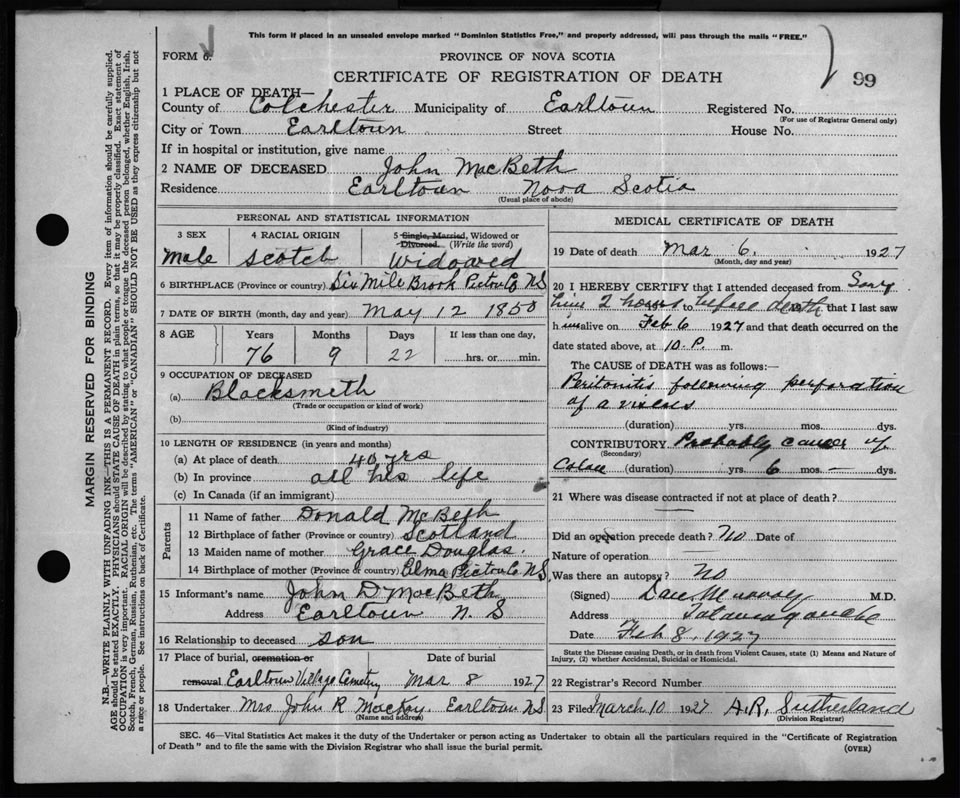 This form if placed in an unsealed envelope marked "Dominion Statistics Free," and properly addressed, will pass through the mails "FREE."
FORM 6.
PROVINCE OF NOVA SCOTIA
CERTIFICATE OF REGISTRATION OF DEATH
99
1 PLACE OF DEATH—
County of Colchester Municipality of Earltown Registered No.
(For use of Registrar General only)
City or Town Earltown Street House No.
If in hospital or institution, give name
2 NAME OF DECEASED John MacBeth
Residence Earltown Nova Scotia
(Usual place of abode)
PERSONAL AND STATISTICAL INFORMATION
3 SEX 4 RACIAL ORIGIN 5 Single, Married, Widowed or Divorced. (Write the word)
Male Scotch Widowed
6 BIRTHPLACE (Province or country) Six Mile Brook Pictou Co NS
7 DATE OF BIRTH (month, day and year) May 12 1850
8 AGE Years Months Days If less than one day,
76 9 22 hrs. or min.
9 OCCUPATION OF DECEASED
(a) Blacksmith
(Trade or occupation or kind of work)
(b)
(Kind of industry)
10 LENGTH OF RESIDENCE (in years and months)
(a) At place of death 40 yrs
(b) In province all his life
(c) In Canada (if an immigrant)
Parents
11 Name of father Donald McBeth
12 Birthplace of father (Province or country) Scotland
13 Maiden name of mother Grace Douglas.
14 Birthplace of mother (Province or country) Elma Pictou Co NS
15 Informant's name John D MacBeth
Address Earltown N. S
16 Relationship to deceased son
17 Place of burial, cremation or removal Date of burial
Earltown Village Cemetery Mar 8 1927
18 Undertaker Mrs John R MacKay Earltown NS
(Name and address)
MEDICAL CERTIFICATE OF DEATH
19 Date of death Mar 6. 1927
(Month, day and year)
20 I HEREBY CERTIFY that I attended deceased from Saw
him 2 hours before death that I last saw
him alive on Feb 6 1927 and that death occurred on
date stated above, at 10 P. m.
The CAUSE of DEATH was as follows:—
Peritonitis following perforation
of a viscus
(duration) yrs. mos. dys.
CONTRIBUTORY Probably cancer of
(Secondary)
Colon (duration) yrs. 6 mos. — dys.
21 Where was disease contracted if not at place of death?
Did an operation precede death? No Date of
Nature of operation
Was there an autopsy? No
(Signed) Dan Murray M.D.
Address Tatamagouche
Date Feb 8, 1927
State the Disease causing Death, or in death from Violent Causes, state (1) Means and Nature of
Injury, (2) whether Accidental, Suicidal or Homicidal.
22 Registrar's Record Number
23 Filed March 10 1927 A.R. Sutherland
(Division Registrar)
SEC. 46—Vital Statistics Act makes it the duty of the Undertaker or person acting as Undertaker to obtain all the particulars required in the "Certificate of Registration
of Death" and to file the same with the Division Registrar who shall issue the burial permit.
(OVER)
MARGIN RESERVED FOR BINDING
N.B.—WRITE PLAINLY WITH UNFADING INK—THIS IS A PERMANENT RECORD. Every item of information should be carefully supplied.
AGE should be stated EXACTLY. PHYSICIANS should STATE CAUSE OF DEATH in plain terms, so that it may be properly classified. Exact statement of
OCCUPATION is very important. RACIAL ORIGIN will be described by stating to what people or tongue the deceased person belonged, whether English, Irish,
Scotch, French, German, Russian, Ruthenian, etc. The terms "AMERICAN" or "CANADIAN" SHOULD NOT BE USED as they express citizenship but not
a race or people. See instructions on back of Certificate.